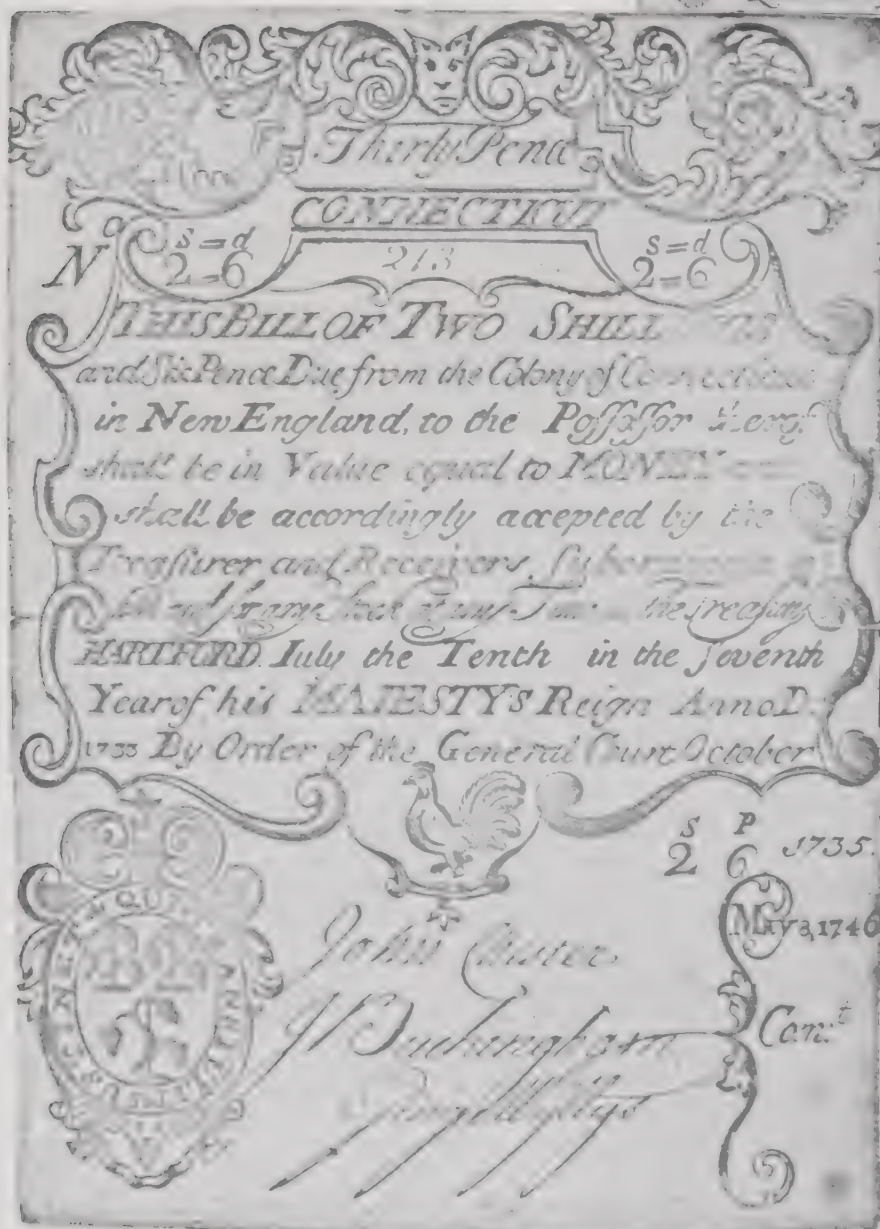 Thirty Pence
CONNECTICUT
No s=d 2=6 213 s=d 2=6
THIS BILL OF TWO SHILL
and Six Pence Due from the Colony of Connecticut
in New England, to the Possessor therof
shall be in Value equal to MONEY
shall be accordingly accepted by the
Treasurer and Receivers,
the Treasury
HARTFORD. July the Tenth in the Seventh
Year of his MAJESTY'S Reign Anno D:
1733 By Order of the General Court October
S P
2 6 1735.
May 8, 1746
SUSTINET QUI TRANSTULIT
John Chester
J Buckingham
Con:t